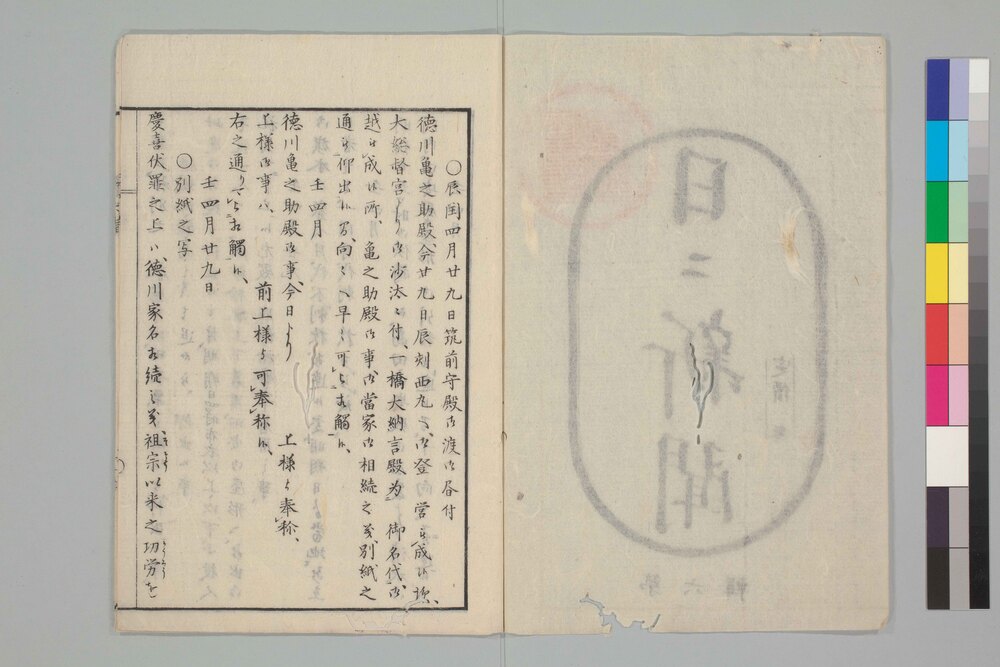 ○辰閏四月廿九日筑前守殿御渡御书付
徳川亀之助殿今廿九日辰刻西丸へ御登営可被成候様
大総督宮より御沙汰ニ付一橋大納言殿為 御名代御
越被成候所、亀之助殿御事御當家御相続之義別紙之
通被仰出候間向々へ早々可被相觸候、
壬四月
徳川亀之助殿御事、今日より 上様と奉称、
上様御事ハ、前上様と可奉称候、
右之通り可被相觸候、
壬四月廿九日
○別紙之写
慶喜伏罪之上ハ徳川家名相続之義祖宗以来之功労を
日ニ新聞
第六輯